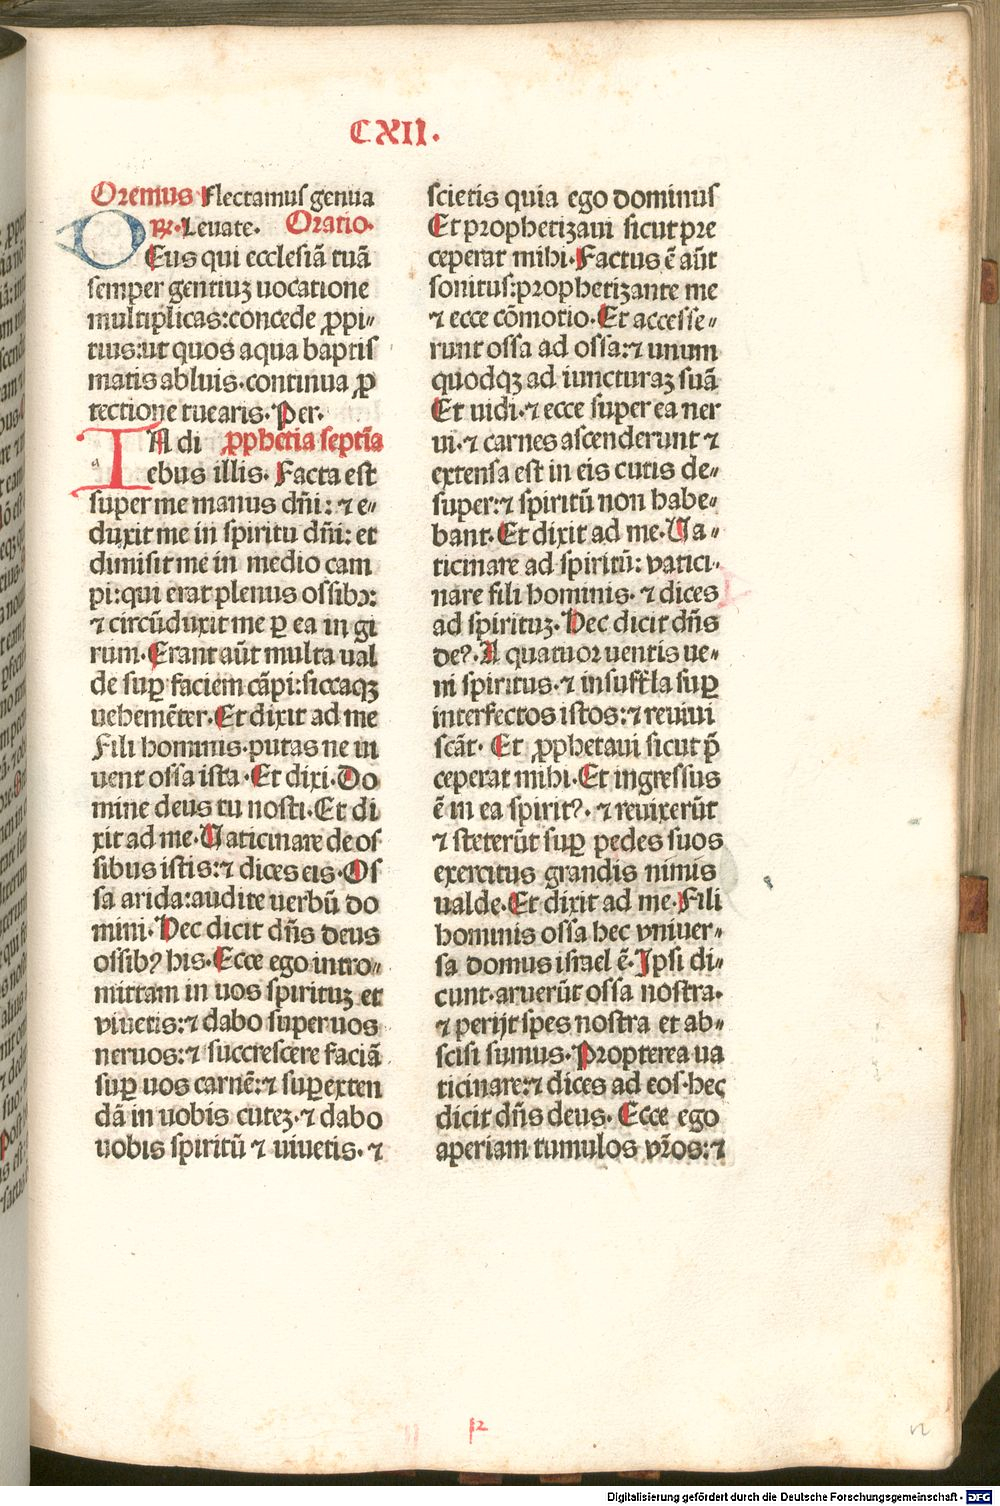 CXII.
Oremus Flectamus genua
℟. Leuate. Oratio.
DEus qui ecclesiā tuā
semper gentiuʒ uocatione
multiplicas: concede ꝓpi〃
tius: ut quos aqua baptis
matis abluis. continua ꝓ
tectione tuearis. Per.
IN di ꝓphetia septīa
ebus illis. Facta est
super me manus dn̄i: ⁊ e〃
duxit me in spiritu dn̄i: et
dimisit me in medio cam
pi: qui erat plenus ossibꝫ:
⁊ circūduxit me ꝑ ea in gi
rum. Erant aūt multa ual
de suꝑ faciem cāpi: siccaqꝫ
uehemēter. Et dixit ad me
Fili hominis. putas ne ui
uent ossa ista. Et dixi. Do
mine deus tu nosti. Et di
xit ad me. Vaticinare de os
sibus istis: ⁊ dices eis. Os
sa arida: audite uerbū do
mini. Hec dicit dn̄s deus
ossibꝰ his. Ecce ego intro〃
mittam in uos spirituʒ et
viuetis: ⁊ dabo super uos
neruos: ⁊ succrescere faciā
suꝑ uos carnē: ⁊ suꝑexten
dā in uobis cuteʒ. ⁊ dabo
uobis spiritū ⁊ uiuetis. ⁊
scietis quia ego dominus
Et prophetizaui sicut pre
ceperat mihi. Factus ē aūt
sonitus: prophetizante me
⁊ ecce cōmotio. Et accesse〃
runt ossa ad ossa: ⁊ unum
quodqꝫ ad iuncturaʒ suā
Et uidi. ⁊ ecce super ea ner
ui. ⁊ carnes ascenderunt ⁊
extensa est in eis cutis de〃
super: ⁊ spiritū non habe〃
bant. Et dixit ad me. Va〃
ticinare ad spiritū: vatici〃
nare fili hominis. ⁊ dices
ad spirituʒ. Hec dicit dn̄s
deꝰ. A quatuor uentis ue〃
ni spiritus. ⁊ insuffla suꝑ
interfectos istos: ⁊ reuiui
scāt. Et ꝓphetaui sicut p̄
ceperat mihi. Et ingressus
ē in ea spiritꝰ. ⁊ reuixerūt
⁊ steterūt suꝑ pedes suos
exercitus grandis nimis
ualde. Et dixit ad me. Fili
hominis ossa hec vniuer〃
sa domus israel ē. Ipsi di〃
cunt. aruerūt ossa nostra.
⁊ perijt spes nostra et ab〃
scisi sumus. Propterea ua
ticinare: ⁊ dices ad eos. hec
dicit dn̄s deus. Ecce ego
aperiam tumulos vr̄os: ⁊
Digitalisierung gefördert durch die Deutsche Forschungsgemeinschaft - DFG